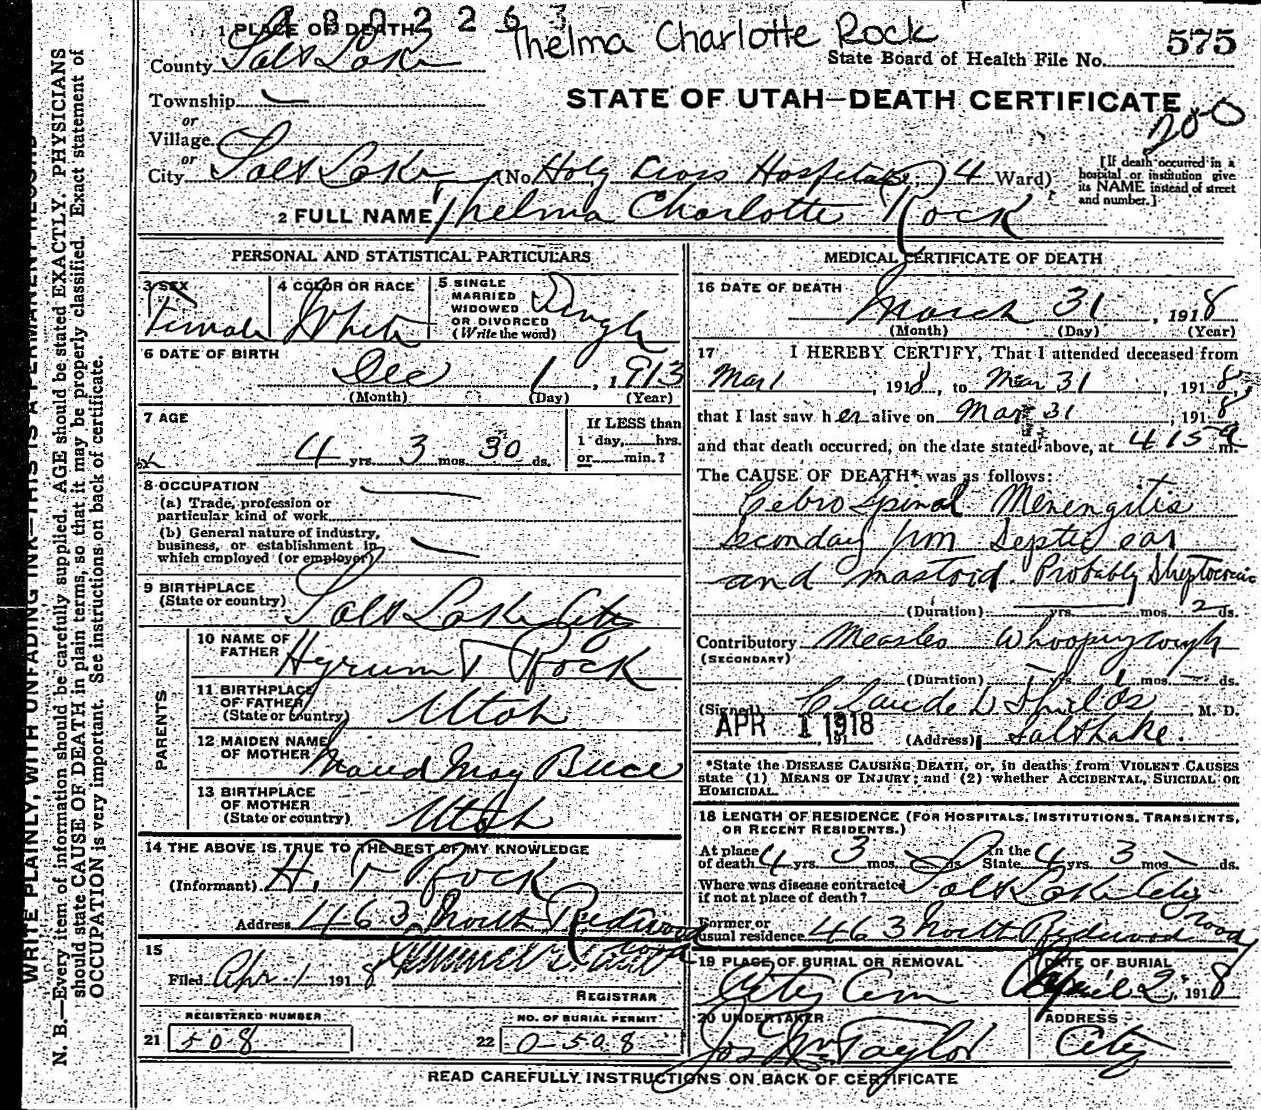 8 0 0 2 2 6 3
Thelma Charlotte Rock
575
1 PLACE OF DEATH
County Salt Lake
State Board of Health File No.
Township
STATE OF UTAH—DEATH CERTIFICATE
or
Village
or
City Salt Lake (No. Holy Cross Hospital St.; 4 Ward)
[If death occurred in a
hospital or institution give
its NAME instead of street
and number.]
2 FULL NAME Thelma Charlotte Rock
PERSONAL AND STATISTICAL PARTICULARS
3 SEX
Female
4 COLOR OR RACE
White
5 SINGLE
MARRIED
WIDOWED
OR DIVORCED
(Write the word)
Single
6 DATE OF BIRTH
Dec 1, 1913
(Month) (Day) (Year)
7 AGE
4 yrs. 3 mos. 30 ds.
If LESS than
1 day, hrs.
or min.?
8 OCCUPATION
(a) Trade, profession or
particular kind of work
(b) General nature of industry,
business, or establishment in
which employed (or employer)
9 BIRTHPLACE
(State or country) Salt Lake City
PARENTS
10 NAME OF
FATHER Hyrum T Rock
11 BIRTHPLACE
OF FATHER
(State or country) Utah
12 MAIDEN NAME
OF MOTHER Maud May Buce
13 BIRTHPLACE
OF MOTHER
(State or country) Utah
14 THE ABOVE IS TRUE TO THE BEST OF MY KNOWLEDGE
(Informant) H. T Rock
Address 463 North Redwood
road
15
Filed Apr. 1 1918
REGISTRAR
REGISTERED NUMBER
21 508
NO. OF BURIAL PERMIT
22 0-508
MEDICAL CERTIFICATE OF DEATH
16 DATE OF DEATH
March 31, 1918
(Month) (Day) (Year)
17 I HEREBY CERTIFY, That I attended deceased from
Mar 1, 1918, to Mar 31, 1918,
that I last saw her alive on Mar 31, 1918
and that death occurred, on the date stated above, at 415 a m.
The CAUSE OF DEATH* was as follows:
Cebro Spinal Menengitis
Seconday from Septic ear
and mastoid. Probably Streptococcic
(Duration) yrs. mos. 2 ds.
Contributory Measles Whooping cough
(SECONDARY)
(Duration) yrs. mos. ds.
(Signed) Claude L Shields M. D.
APR 1 1918
, 191 (Address) Salt Lake.
*State the DISEASE CAUSING DEATH, or, in deaths from VIOLENT CAUSES
state (1) MEANS OF INJURY; and (2) whether ACCIDENTAL, SUICIDAL OR
HOMICIDAL.
18 LENGTH OF RESIDENCE (FOR HOSPITALS, INSTITUTIONS, TRANSIENTS,
OR RECENT RESIDENTS.)
At place
of death 4 yrs. 3 mos. ds. In the
State 4 yrs. 3 mos. ds.
Where was disease contracted
if not at place of death? Salt Lake City
Former or
usual residence 463 North Redwood road
19 PLACE OF BURIAL OR REMOVAL
City Cem
DATE OF BURIAL
April 2, 1918
20 UNDERTAKER
Jos Wm Taylor
ADDRESS
City
READ CAREFULLY INSTRUCTIONS ON BACK OF CERTIFICATE
N. B.—Every item of information should be carefully supplied. AGE should be stated EXACTLY. PHYSICIANS
should state CAUSE OF DEATH in plain terms, so that it may be properly classified. Exact statement of
OCCUPATION is very important. See instructions on back of certificate.
WRITE PLAINLY, WITH UNFADING INK—THIS IS A PERMANENT RECORD